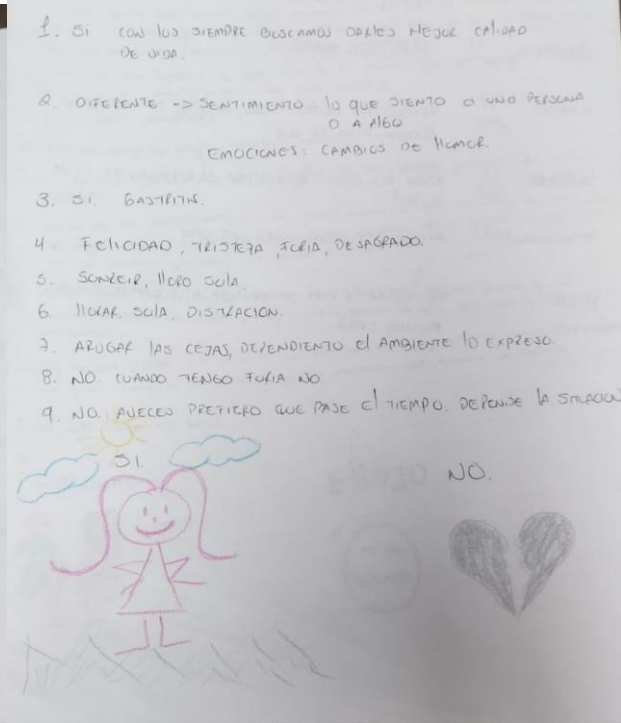 1. SI CON LOS SIEMPRE BUSCAMOS DARLES MEJOR CALIDAD
DE VIDA.
2. DIFERENTE -> SENTIMIENTO lo que SIENTO A UNA PERSONA
O A Algo
EMOCIONES: CAMBIOS DE HUMOR.
3. SI. GASTRITIS.
4 FElICIDAD, TRISTEZA, FURIA, DESAGRADO.
5. SONREIR, llORO SOlA.
6 llORAR SOlA. DISTRACION.
7. ARUGAR LAS CEJAS, DEPENDIENTO El AMBIENTE lO EXPRESO.
8. NO. CUANDO TENGO FURIA NO.
9. NO. AVECES PREFIERO QUE PASE El TIEMPO. DEPENDE lA SITUACION
SI.
NO.